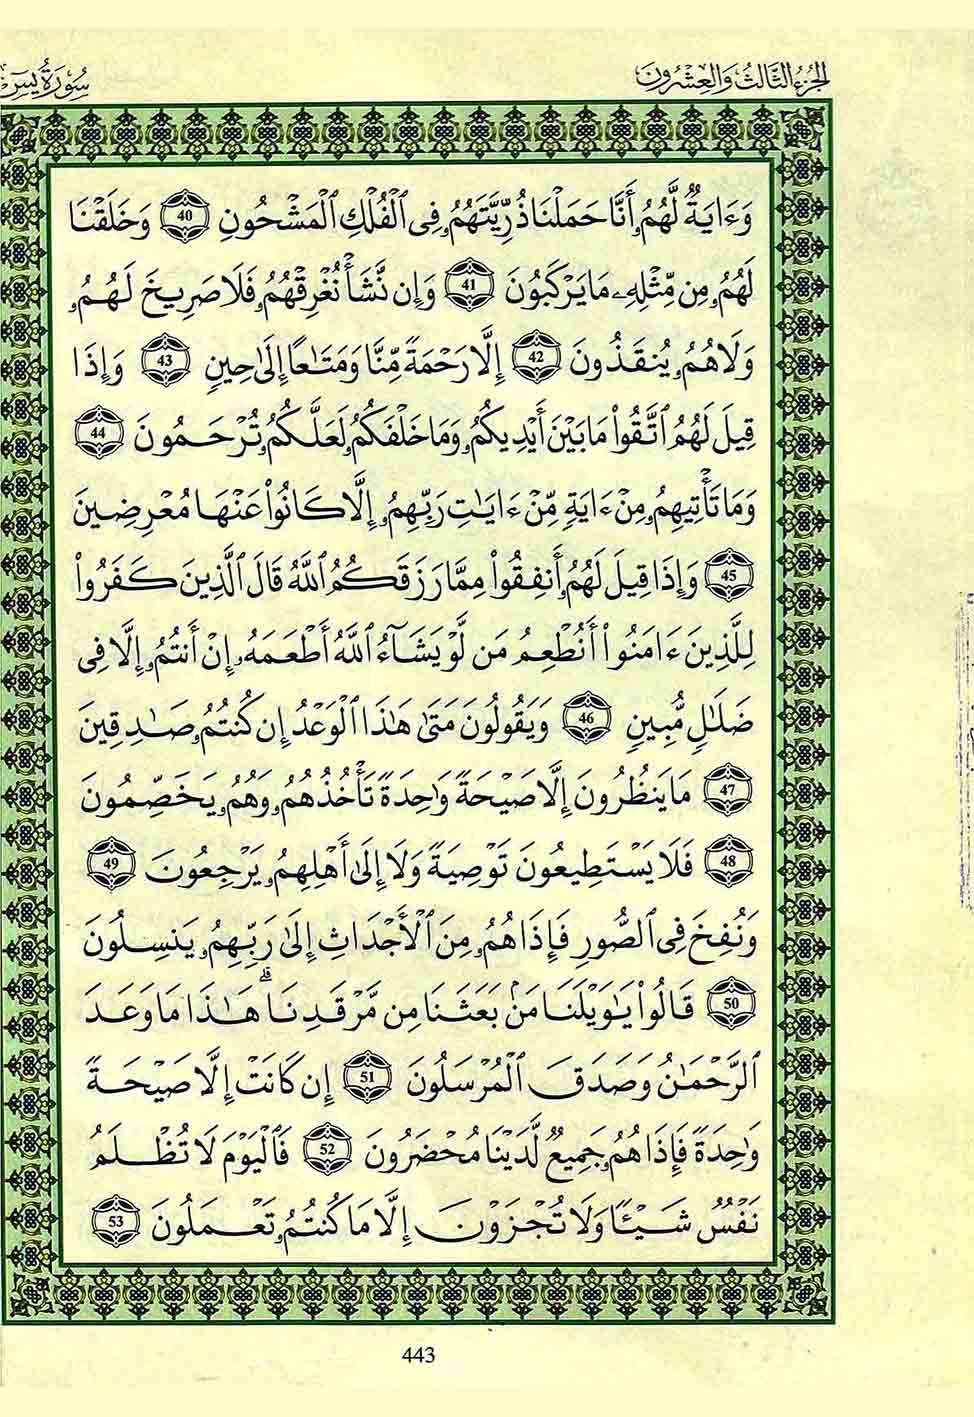 الجزء الثالث والعشرون
سورة يس
وَءَايَةٌ لَّهُمُۥ أَنَّا حَمَلْنَا ذُرِّيَّتَهُمُۥ فِى ٱلْفُلْكِ ٱلْمَشْحُونِ 40 وَخَلَقْنَا
لَهُمُۥ مِن مِّثْلِهِۦ مَا يَرْكَبُونَ 41 وَإِن نَّشَأْ نُغْرِقْهُمُۥ فَلَا صَرِيخَ لَهُمُۥ
وَلَا هُمُۥ يُنقَذُونَ 42 إِلَّا رَحْمَةً مِّنَّا وَمَتَٰعًا إِلَىٰ حِينٍ 43 وَإِذَا
قِيلَ لَهُمُ ٱتَّقُوا۟ مَا بَيْنَ أَيْدِيكُمُۥ وَمَا خَلْفَكُمُۥ لَعَلَّكُمُۥ تُرْحَمُونَ 44
وَمَا تَأْتِيهِمُۥ مِنْ ءَايَةٍ مِّنْ ءَايَٰتِ رَبِّهِمُۥ إِلَّا كَانُوا۟ عَنْهَا مُعْرِضِينَ
45 وَإِذَا قِيلَ لَهُمُۥ أَنفِقُوا۟ مِمَّا رَزَقَكُمُ ٱللَّهُ قَالَ ٱلَّذِينَ كَفَرُوا۟
لِلَّذِينَ ءَامَنُوا۟ أَنُطْعِمُ مَن لَّوْ يَشَآءُ ٱللَّهُ أَطْعَمَهُۥ إِنْ أَنتُمُۥ إِلَّا فِى
ضَلَٰلٍ مُّبِينٍ 46 وَيَقُولُونَ مَتَىٰ هَٰذَا ٱلْوَعْدُ إِن كُنتُمُۥ صَٰدِقِينَ
47 مَا يَنظُرُونَ إِلَّا صَيْحَةً وَٰحِدَةً تَأْخُذُهُمُۥ وَهُمُۥ يَخَصِّمُونَ
48 فَلَا يَسْتَطِيعُونَ تَوْصِيَةً وَلَا إِلَىٰ أَهْلِهِمُۥ يَرْجِعُونَ 49
وَنُفِخَ فِى ٱلصُّورِ فَإِذَا هُمُۥ مِنَ ٱلْأَجْدَاثِ إِلَىٰ رَبِّهِمُۥ يَنسِلُونَ
50 قَالُوا۟ يَٰوَيْلَنَا مَنۢ بَعَثَنَا مِن مَّرْقَدِنَا ۗ هَٰذَا مَا وَعَدَ
ٱلرَّحْمَٰنُ وَصَدَقَ ٱلْمُرْسَلُونَ 51 إِن كَانَتْ إِلَّا صَيْحَةً
وَٰحِدَةً فَإِذَا هُمُۥ جَمِيعٌ لَّدَيْنَا مُحْضَرُونَ 52 فَٱلْيَوْمَ لَا تُظْلَمُ
نَفْسٌ شَيْـًٔا وَلَا تُجْزَوْنَ إِلَّا مَا كُنتُمُۥ تَعْمَلُونَ 53
443